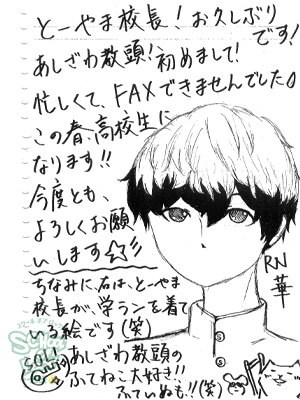 とーやま校長！お久しぶり
です！
あしざわ教頭！初めまして！
忙しくて、FAXできませんでした。
この春、高校生に
なります！！
今度とも、
よろしくお願
いします☆彡
ちなみに、右は、とーやま
校長が、学ランを着て
いる絵です(笑)
あしざわ教頭の
ふてねこ大好き！！
ふていぬも！！(笑)
RN
華